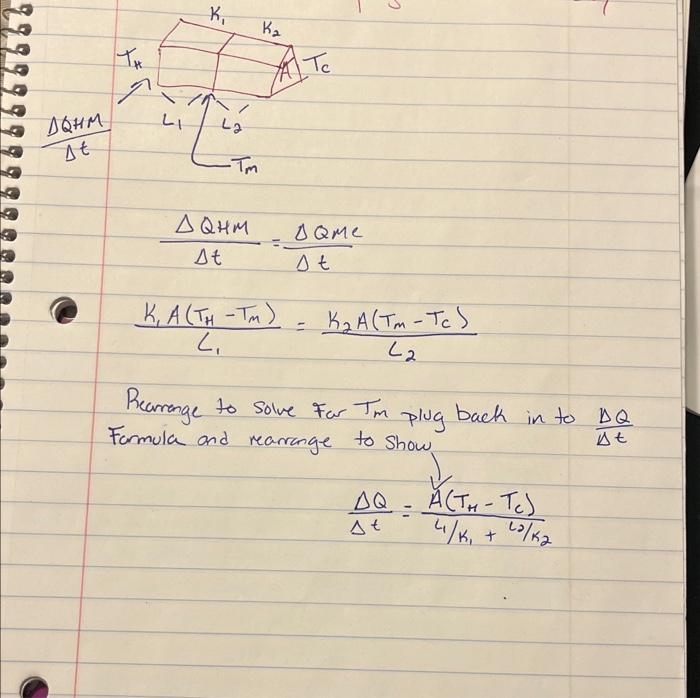 K₁
K₂
T_H
T_C
A
L₁
L₂
ΔQHM
Δt
Tm
ΔQHM / Δt = ΔQMC / Δt
K₁A(T_H - T_m) / L₁ = K₂A(T_m - T_C) / L₂
Rearrange to solve for Tm plug back in to ΔQ/Δt
Formula and rearrange to show
ΔQ / Δt = A(T_H - T_C) / L₁/K₁ + L₂/K₂